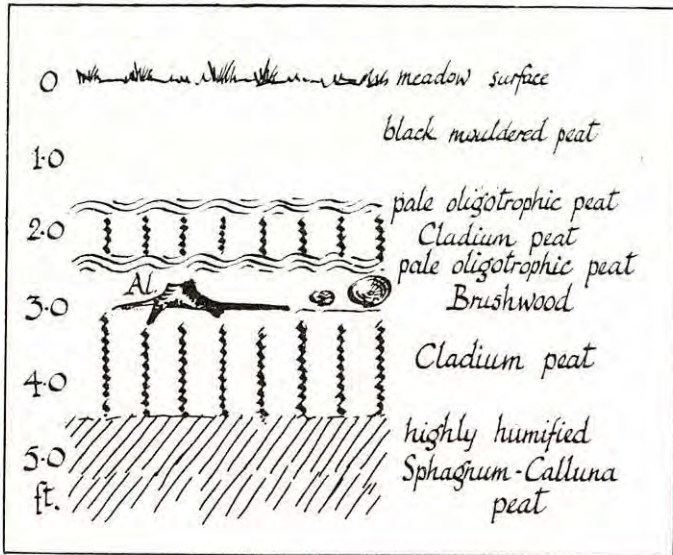 0 meadow surface
black mouldered peat
1·0
pale oligotrophic peat
2·0 Cladium peat
pale oligotrophic peat
Al.
3·0 Brushwood
Cladium peat
4·0
highly humified
5·0 Sphagnum-Calluna
ft. peat